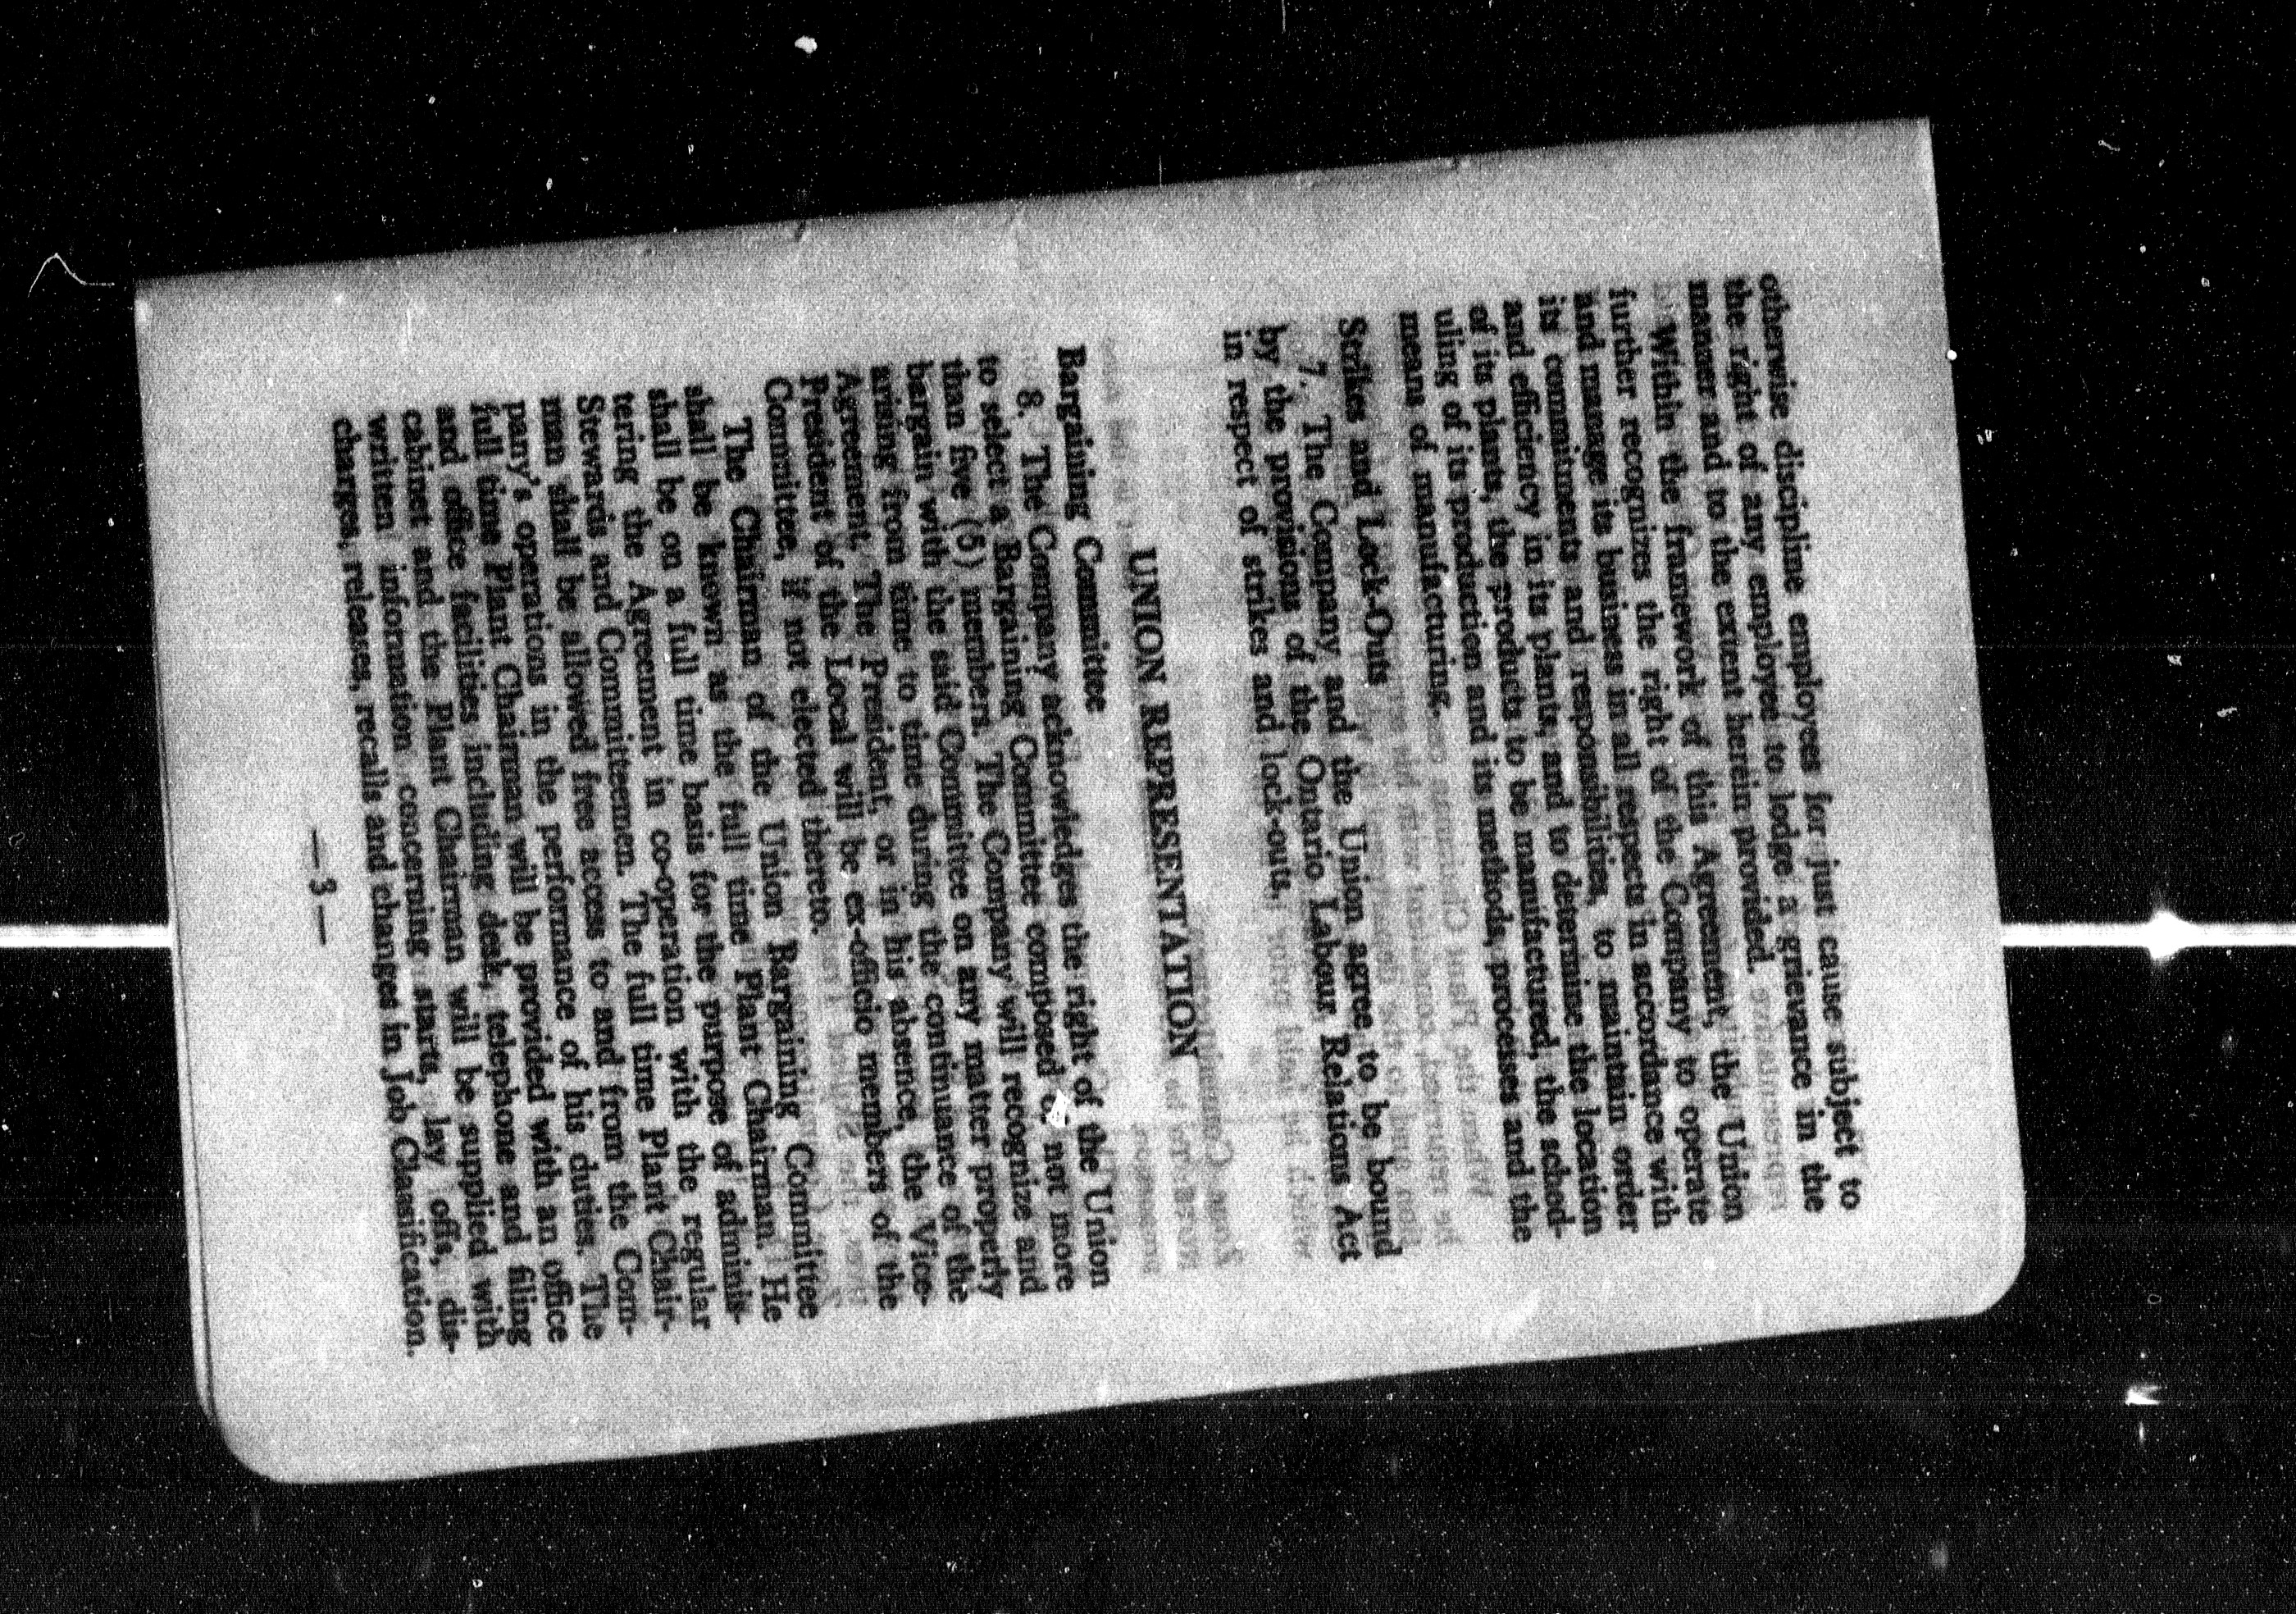 otherwise discipline employees for just cause subject to
the right of any employee to lodge a grievance in the
manner and to the extent herein provided.
Within the framework of this Agreement, the Union
further recognizes the right of the Company to operate
and manage its business in all respects in accordance with
its commitments and responsibilities, to maintain order
and efficiency in its plants, and to determine the location
of its plants, the products to be manufactured, the sched-
uling of its production and its methods, processes and the
means of manufacturing.
Strikes and Lock-Outs
7. The Company and the Union agree to be bound
by the provisions of the Ontario Labour Relations Act
in respect of strikes and lock-outs.
UNION REPRESENTATION
Bargaining Committee
8. The Company acknowledges the right of the Union
to select a Bargaining Committee composed not more
than five (5) members. The Company will recognize and
bargain with the said Committee on any matter properly
arising from time to time during the continuance of the
Agreement. The President, or in his absence, the Vice-
President of the Local will be ex-officio members of the
Committee, if not elected thereto.
The Chairman of the Union Bargaining Committee
shall be known as the full time Plant Chairman. He
shall be on a full time basis for the purpose of adminis-
tering the Agreement in co-operation with the regular
Stewards and Committeemen. The full time Plant Chair-
man shall be allowed free access to and from the Com-
pany's operations in the performance of his duties. The
full time Plant Chairman will be provided with an office
and office facilities including desk, telephone and filing
cabinet and the Plant Chairman will be supplied with
written information concerning starts, lay offs, dis-
charges, releases, recalls and changes in Job Classification.
— 3 —